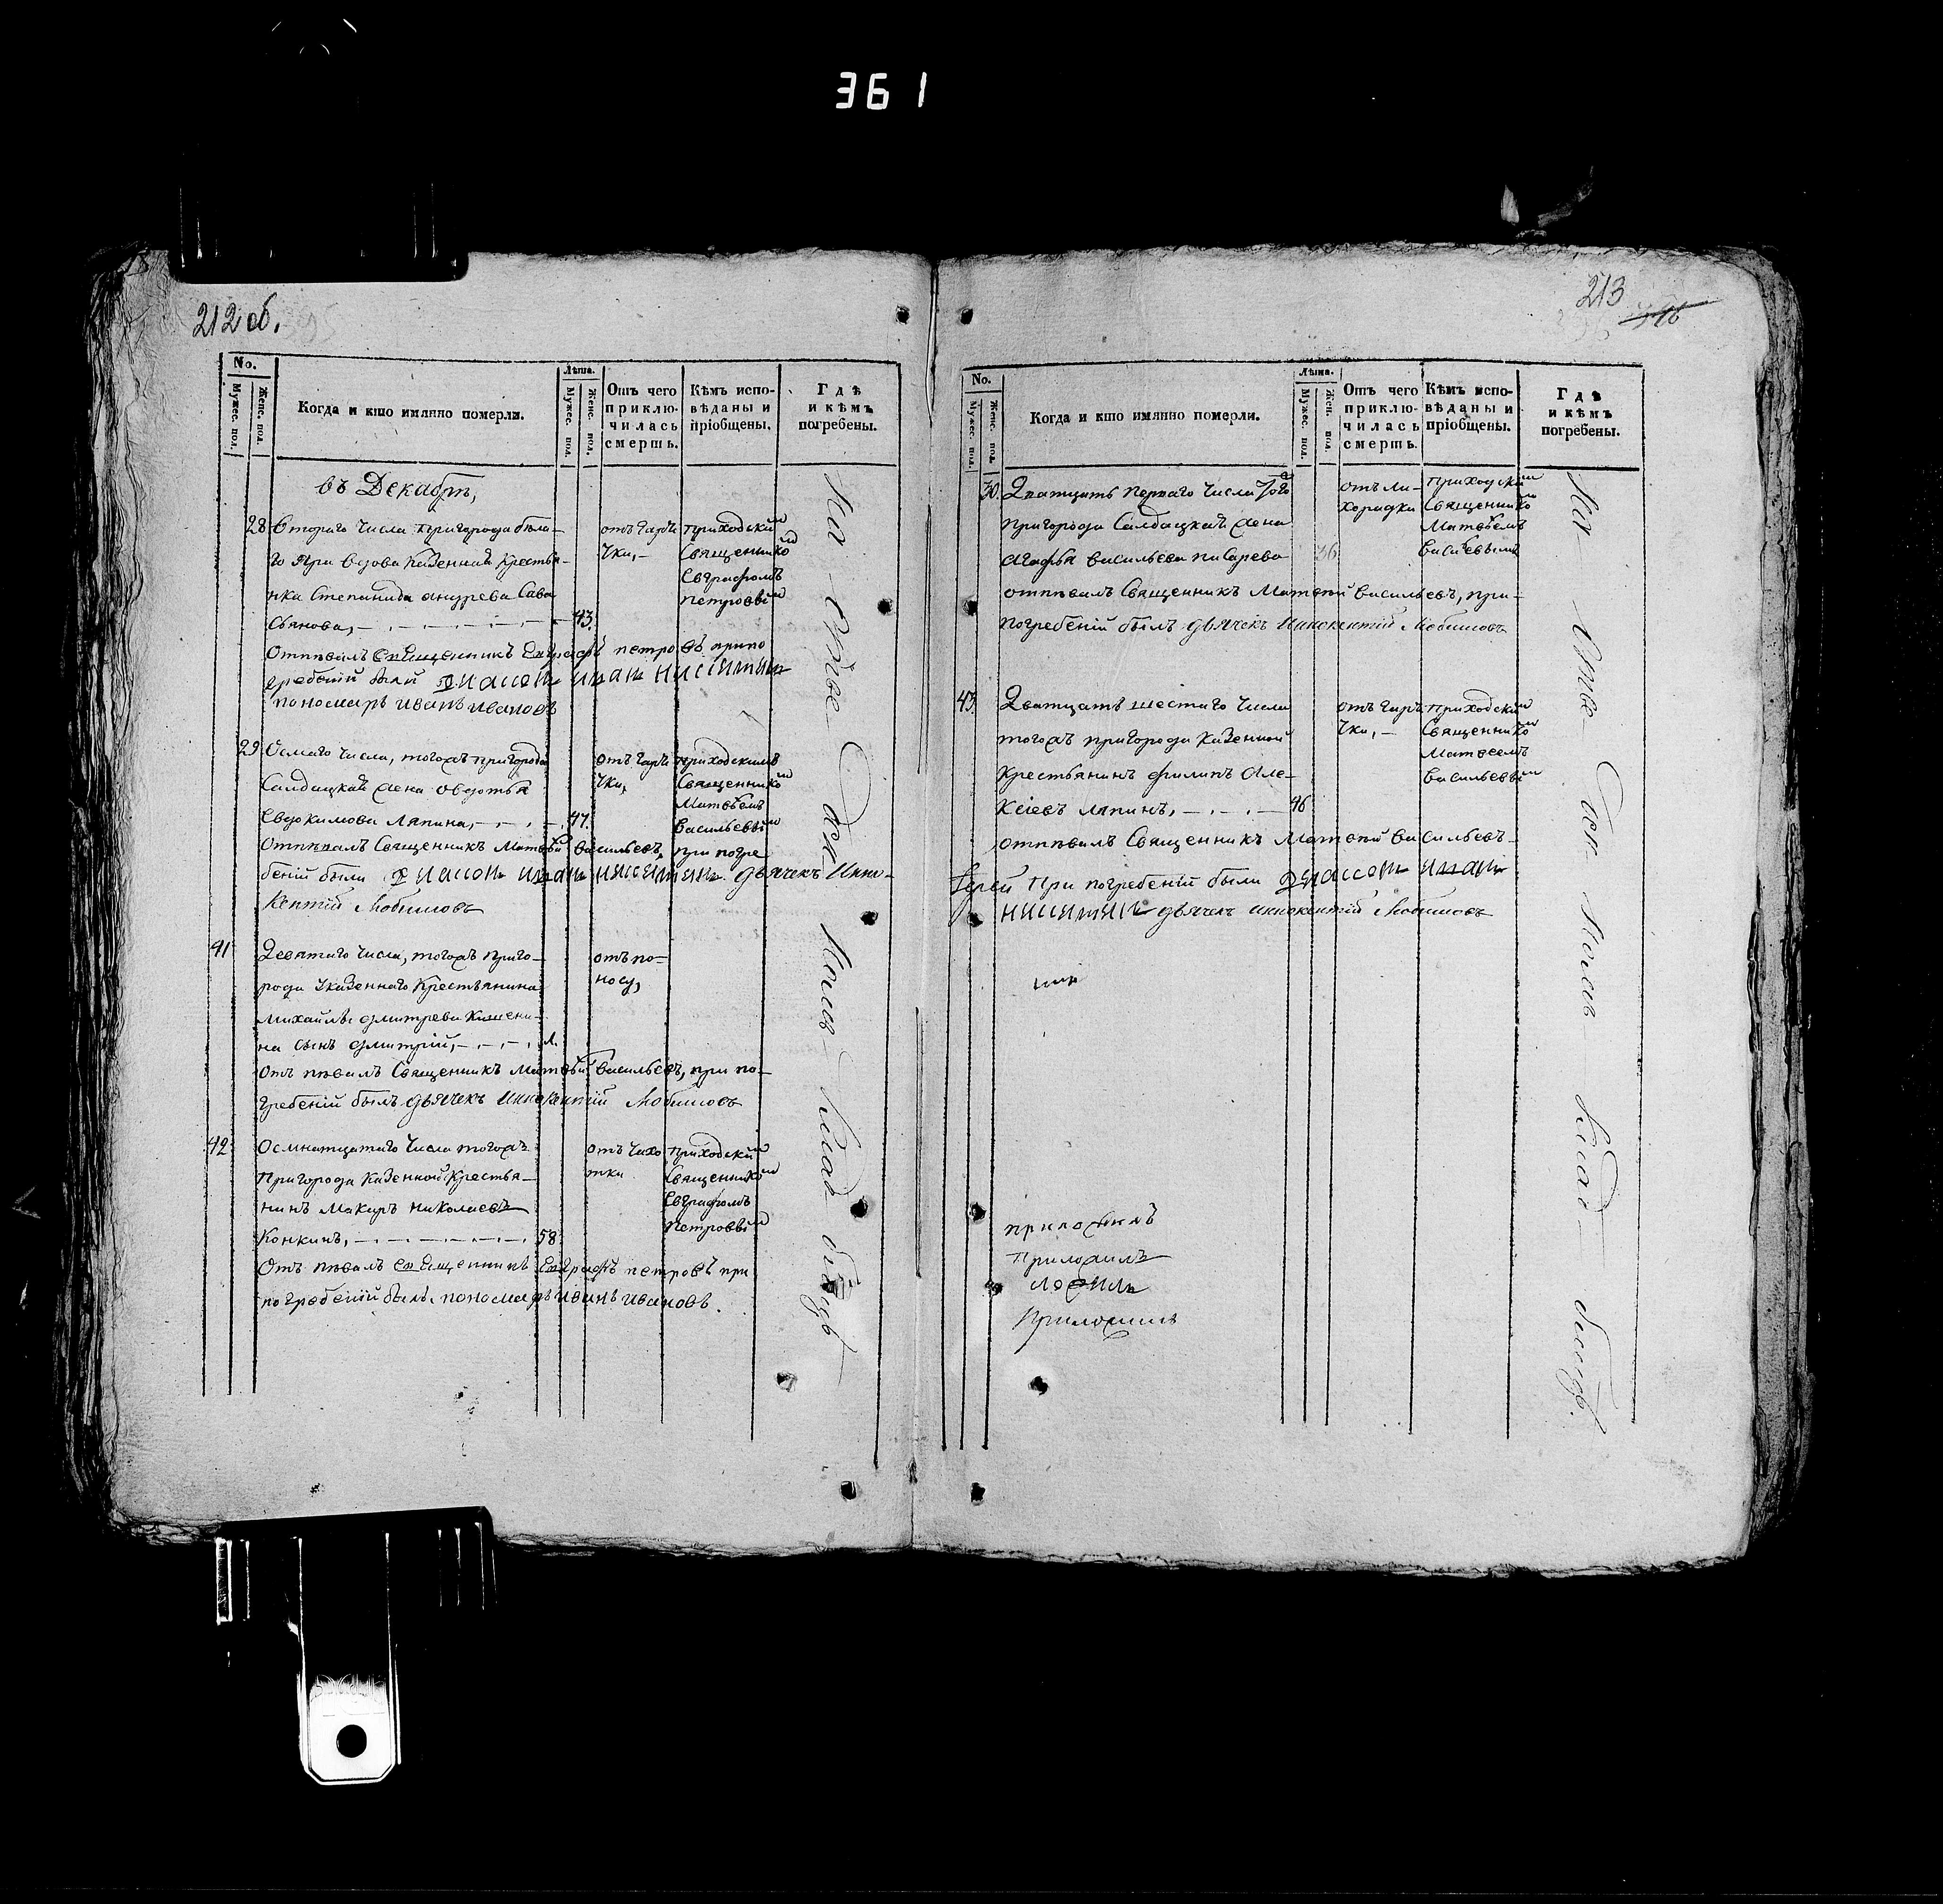 361
212 об.
No.
Мужес. пол.
Женс. пол.
Когда и кто имянно померли.
Лѣта.
Мужес. пол.
Женс. пол.
Отъ чего приклю- чилась смерть.
Кѣмъ испо- вѣданы и пріобщены.
Гдѣ и кѣмъ погребены.
въ Декабрѣ,
28 Втораго числа пригорода бѣла-
го Яра вдова казенная крестья-
нка Степанида андрева Сава
стьянова, 43.
отъ гаря-
чки,
приходским
Священнико
Евграфомъ
Петровы
Отпѣвалъ Священникъ Евграфъ петровъ припо
гребеній были діаконъ иванъ никитинъ
пономарь иванъ ивановъ
29 Осмаго числа, тогожъ пригорода
Салдацкая жена овдотья
Евдокимова Ляпина, 47.
отъ гаря
чки,
приходскимъ
Священнико
Матвѣемъ
Васильевы
Отпѣвалъ Священникъ Матвѣй васильевъ, при погре
беній были діаконъ иванъ никитинъ. дьячекъ Инно-
кентій Любимовъ
41 Девятаго числа, тогожъ приго-
рода казеннаго крестьянина
михайлы дмитрева
на сынъ дмитрій, 1.
отъ по-
носу,
отъ пѣвалъ Священникъ Матвѣй васильевъ, при по-
гребеній былъ дьячекъ Иннокентій Любимовъ
42 Осмнатцатаго числа тогожъ
пригорода казенной крестья-
нинъ Макаръ николаевъ
Конкинъ, 58
отъ чахо
тки
приходским
Священнико
Евграфомъ
Петровы
Отъ пѣвалъ Священникъ Евграфъ петровъ при
погребеній былъ пономарь иванъ ивановъ.
На отве
213
No.
Мужес. пол.
Женс. пол.
Когда и кто имянно померли.
Лѣта.
Мужес. пол.
Жен. пол.
Отъ чего приклю- чилась смерть.
Кѣмъ испо- вѣданы и пріобщены.
Гдѣ и кѣмъ погребены.
30. Дватцать перваго числа того
пригорода Салдацкая жена
Агафья васильева писарева 36
отъ ли-
хорадки
приходским
Священнико
Матвѣемъ
Васильевымъ
отпѣвалъ Священникъ Матвѣй васильевъ, при-
погребеній былъ дьячекъ Иннокентій Любимовъ
43. Дватцать шестаго числа
тогожъ пригорода казенной
крестьянинъ филипъ Але-
ксіевъ ляпинъ, 46
отъ гаря-
чки,
приходским
Священнико
Матвеемъ
васильевы
отпѣвалъ Священникъ Матвѣй васильевъ-
Іерей При погребеній были діаконъ иванъ
никитинъ дьячекъ иннокентій Любимовъ
приложилъ
Приложилъ
ложилъ
Приложилъ